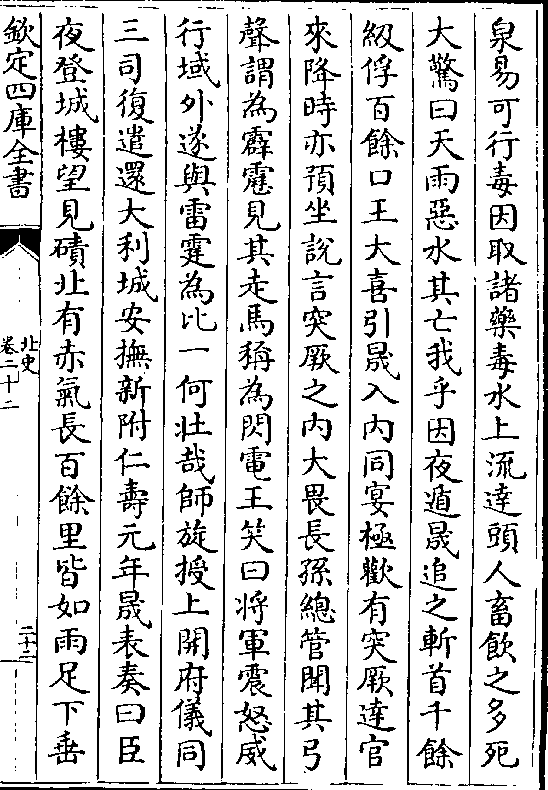 泉易可行毒因取諸藥毒水上流達頭人畜飲之多死
大驚曰天雨惡水其亡我乎因夜遁晟追之斬首千餘
級俘百餘口王大喜引晟入内同宴極歡有突厥達官
來降時亦預坐説言突厥之内大畏長孫總管聞其弓
聲謂為霹靂見其走馬稱為閃電王笑曰將軍震怒威
行域外遂與雷霆為比一何壯哉師旋授上開府儀同
三司復遣還大利城安撫新附仁壽元年晟表奏曰臣
夜登城樓望見磧北有赤氣長百餘里皆如雨足下垂
欽定四庫全書
北史
卷二十二
二十三